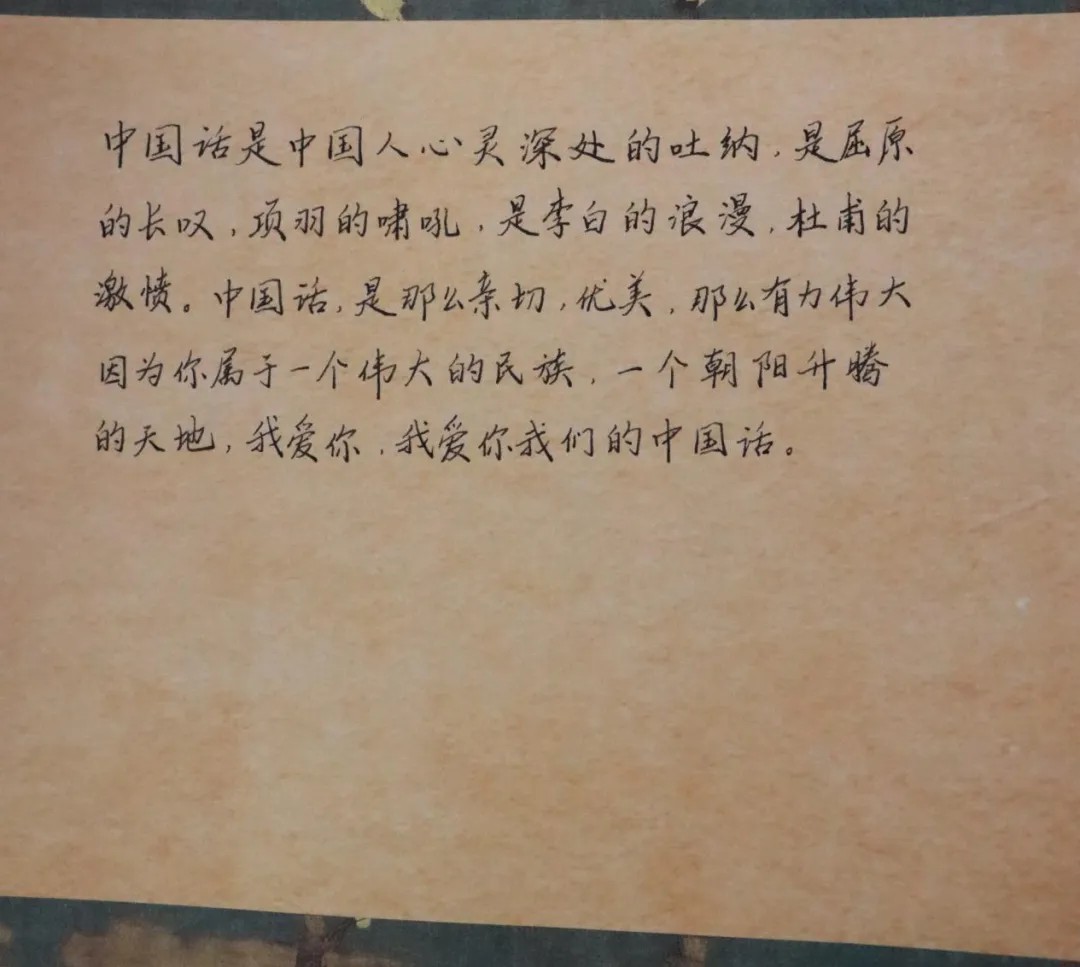 中国话是中国人心灵深处的吐纳，是屈原
的长叹，项羽的啸吼，是李白的浪漫，杜甫的
激愤。中国话，是那么亲切，优美，那么有力伟大
因为你属于一个伟大的民族，一个朝阳升腾
的天地，我爱你，我爱你我们的中国话。